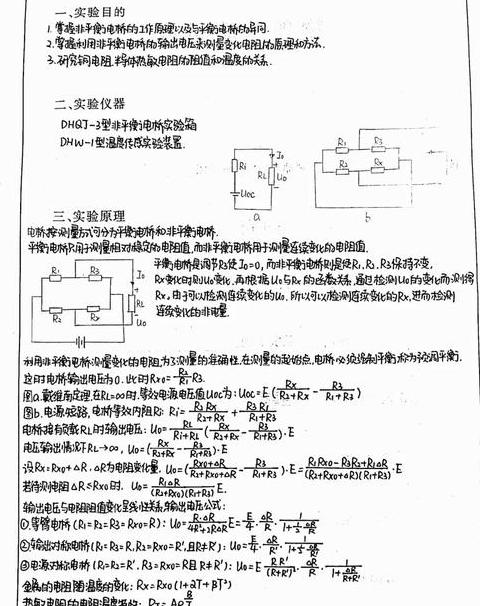 一、实验目的
1.掌握非平衡电桥的工作原理以及与平衡电桥的异同.
2.掌握利用非平衡电桥的输出电压来测量变化电阻的原理和方法.
3.研究铜电阻,半导体热敏电阻的阻值和温度的关系.
二、实验仪器
DHQJ-3型非平衡电桥实验箱
DHW-1型温度传感实验装置.
Ri I0 RL U0 UOC
a
R1 R3 R2 Rx
b
三、实验原理
电桥按测量方式可分为平衡电桥和非平衡电桥.
平衡电桥只用于测量相对稳定的电阻值,而非平衡电桥用于测量连续变化的电阻值.
R1 R3 I0 RL U0 R2 Rx
平衡电桥是调节R3使I0=0,而非平衡电桥则是使R1.R2.R3保持不变,
Rx变化时则U0变化.再根据U0与Rx的函数关系,通过检测U0的变化而测得
Rx,由于可以检测连续变化的U0,所以可以检测连续变化的Rx,进而检测
连续变化的非电量.
利用非平衡电桥测量变化的电阻,为了测量的准确性.在测量的起始点,电桥必须调到平衡,称为预调平衡.
这时电桥输出电压为0.此时Rx0=R2/R1·R3.
图a.戴维南定理,在RL=∞时,等效电源电压值UOC为:UOC=E(Rx/(R2+Rx) - R3/(R1+R3))
图b.电源短路,电桥等效内阻Ri: Ri=R2Rx/(R2+Rx) + R3R1/(R1+R3)
电桥接有负载RL时输出电压: U0=RL/(Ri+RL)(Rx/(R2+Rx) - R3/(R1+R3))·E
电压输出情况下RL→∞, U0=(Rx/(R2+Rx) - R3/(R1+R3))·E
设Rx=Rx0+△R.△R为电阻变化量. U0=((Rx0+△R)/(R2+Rx0+△R) - R3/(R1+R3))·E=(R1Rx0-R3R2+R1△R)/((R2+Rx0+△R)(R1+R3))·E
若待测电阻△R≤Rx0时. U0=R1△R/((R2+Rx0)(R1+R3))E.
输出电压与电阻阻值变化呈线性关系,输出电压公式:
①等臂电桥(R1=R2=R3=Rx0=R): U0=R·△R/(4R²+2R△R)E=E/4·△R/R·1/(1+½△R/R)
②输出对称电桥(R1=R3=R,R2=Rx0=R',且R≠R'): U0=E/4·△R/R'·1/(1+½△R/R')
③电源对称电桥(R1=R2=R',R3=Rx0=R且R≠R'): U0=E RR'/(R+R')²·△R/R·1/(1+△R/(R+R'))
金属的电阻随温度的变化: Rx=Rx0(1+αT+βT²)